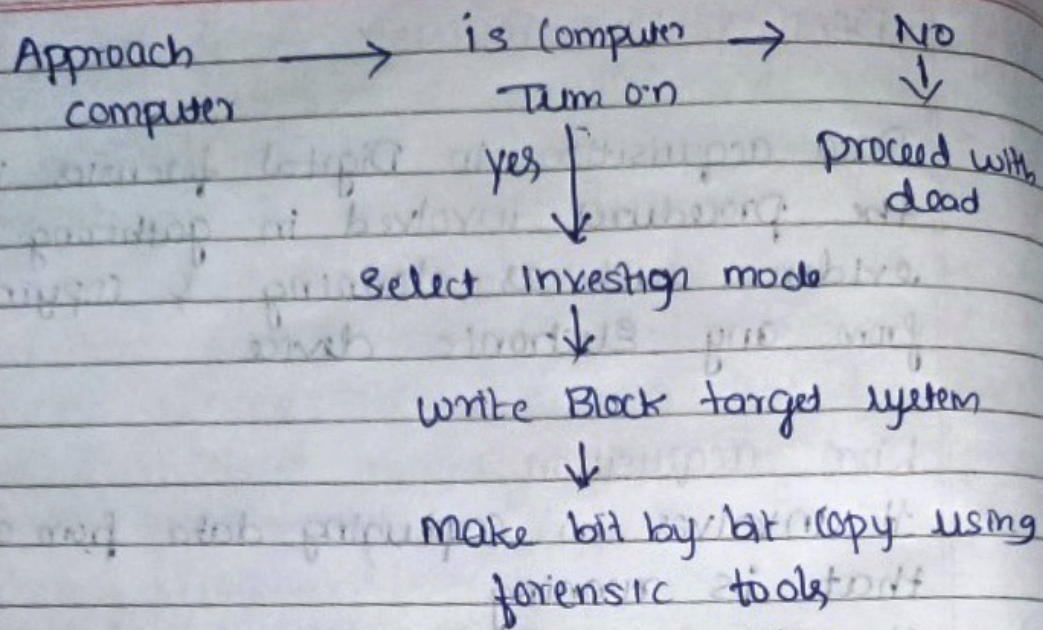 Approach → is Computer → No
computer Turn on ↓
yes ↓ proceed with
dead
Select Investign mode
↓
write Block target system
↓
make bit by bit copy using
forensic tools